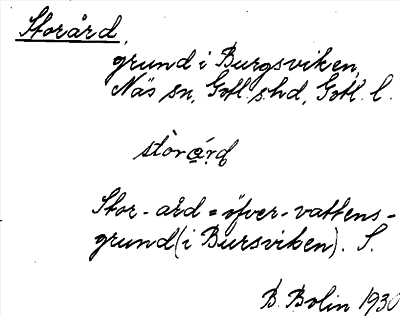 Storård,
grund i Burgsviken,
Näs sn, Gotl. s. hd, Gotl. l.
stòrá̱rd
Stor-ård = öfver-vattens-
grund (i Bursviken). S.
B. Bolin 1930